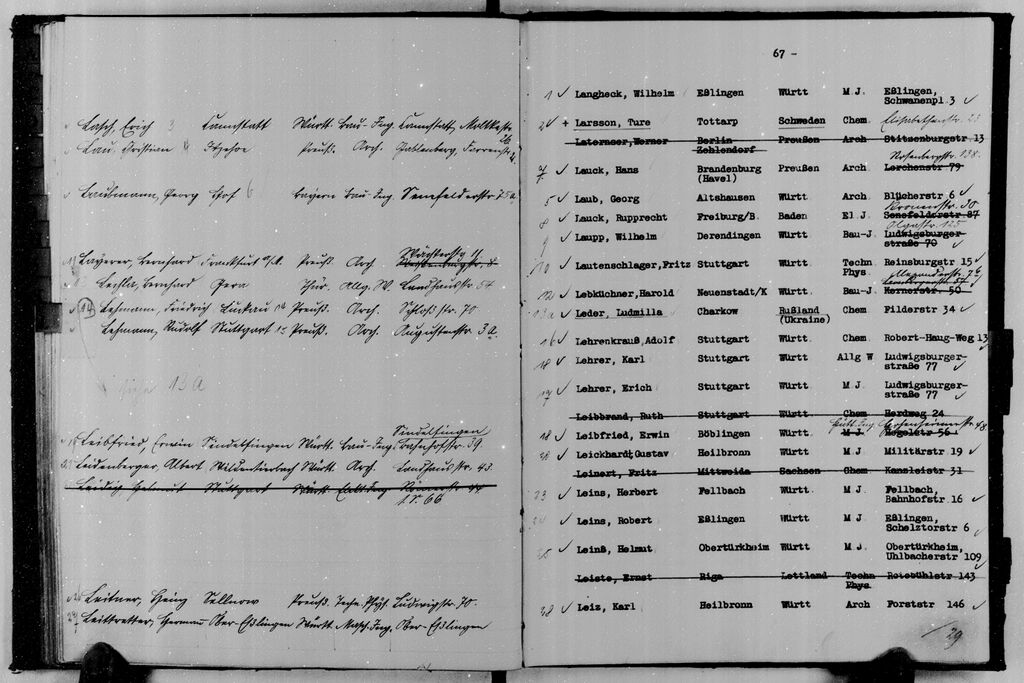 Lasch, Erich 3 Cannstatt Württ. Bau-Ing. Cannstatt, Moltkestr.
Lau, Christian 4 Itzehoe Preuß. Arch.
Laubmann, Georg Hof 6 Bayern Bau-Ing. Senefelderstr. 75a
Layerer, Bernhard Frankfurt a/M. Preuß. Arch.
Bernhard Gera Thür. Allg. W. Landhausstr. 54
Lehmann, Friedrich Preuß. Arch. Schloß str. 70.
Lehmann, Rudolf Stuttgart 15 Preuß. Arch. Augustenstr. 3a.
siehe 13a
Sindelfingen
Leibfried, Erwin Sindelfingen Württ. Bau-Ing. Bahnhofstr. 39.
Leidenberger, Albert Württ. Arch. Landhaus str. 43.
Leidig Helmut Stuttgart Württ.
Leitner, Heinz Sellnow Preuß. Techn. Phys. Ludwigstr. 70.
27 Leittretter, Herman Ober-Eßlingen Württ. Masch. Ing. Ober-Eßlingen
67 -
1 ✓ Langheck, Wilhelm Eßlingen Württ M J. Eßlingen,
Schwanenpl. 3 ✓
2 ✓ + Larsson, Ture Tottarp Schweden Chem. Elisabethenstr. 25
Laternser, Werner Berlin Preußen Arch Stitzenburgstr. 13
Zehlendorf
Rosenbergstr. 138.
7 ✓ Lauck, Hans Brandenburg Preußen Arch. Lerchenstr 79
(Havel)
5 ✓ Laub, Georg Altshausen Württ Arch. Blücherstr 6 ✓
Kronenstr. 50
8 ✓ Lauck, Rupprecht Freiburg/B. Baden El J. Senefelderstr 87
Olgastr. 125
9 ✓ Laupp, Wilhelm Derendingen Württ Bau-J. Ludwigsburger-
straße 70 ✓
10 ✓ Lautenschlager, Fritz Stuttgart Württ Techn Reinsburgstr 15 ✓
Phys.
12 ✓ Lebküchner, Harold Neuenstadt/K Württ Bau-J. Kernerstr. 50
13a ✓ Leder, Ludmilla Charkow Rußland Chem Filderstr 34 ✓
(Ukraine)
16 ✓ Lehrenkrauß, Adolf Stuttgart Württ Chem. Robert-Haug-Weg 13
18 ✓ Lehrer, Karl Stuttgart Württ Allg W Ludwigsburger-
straße 77 ✓
17 ✓ Lehrer, Erich Stuttgart Württ M J. Ludwigsburger-
straße 77 ✓
Leibbrand, Ruth Stuttgart Württ Chem Herdweg 24
18 ✓ Leibfried, Erwin Böblingen Württ M J. Hegelstr 56
✓ Leickhardt, Gustav Heilbronn Württ M J. Militärstr 19 ✓
Leinert, Fritz Mittweida Sachsen Chem Kanzleistr 31
23 ✓ Leins, Herbert Fellbach Württ M J. Fellbach,
Bahnhofstr. 16 ✓
✓ Leins, Robert Eßlingen Württ M J Eßlingen,
Schelztorstr 6 ✓
25 ✓ Leinß, Helmut Obertürkheim Württ M J. Obertürkheim,
Uhlbacherstr 109 ✓
Leiste, Ernst Riga Lettland Techn Rotebühlstr 143
Phys.
28 ✓ Leiz, Karl Heilbronn Württ Arch Forststr 146 ✓
29